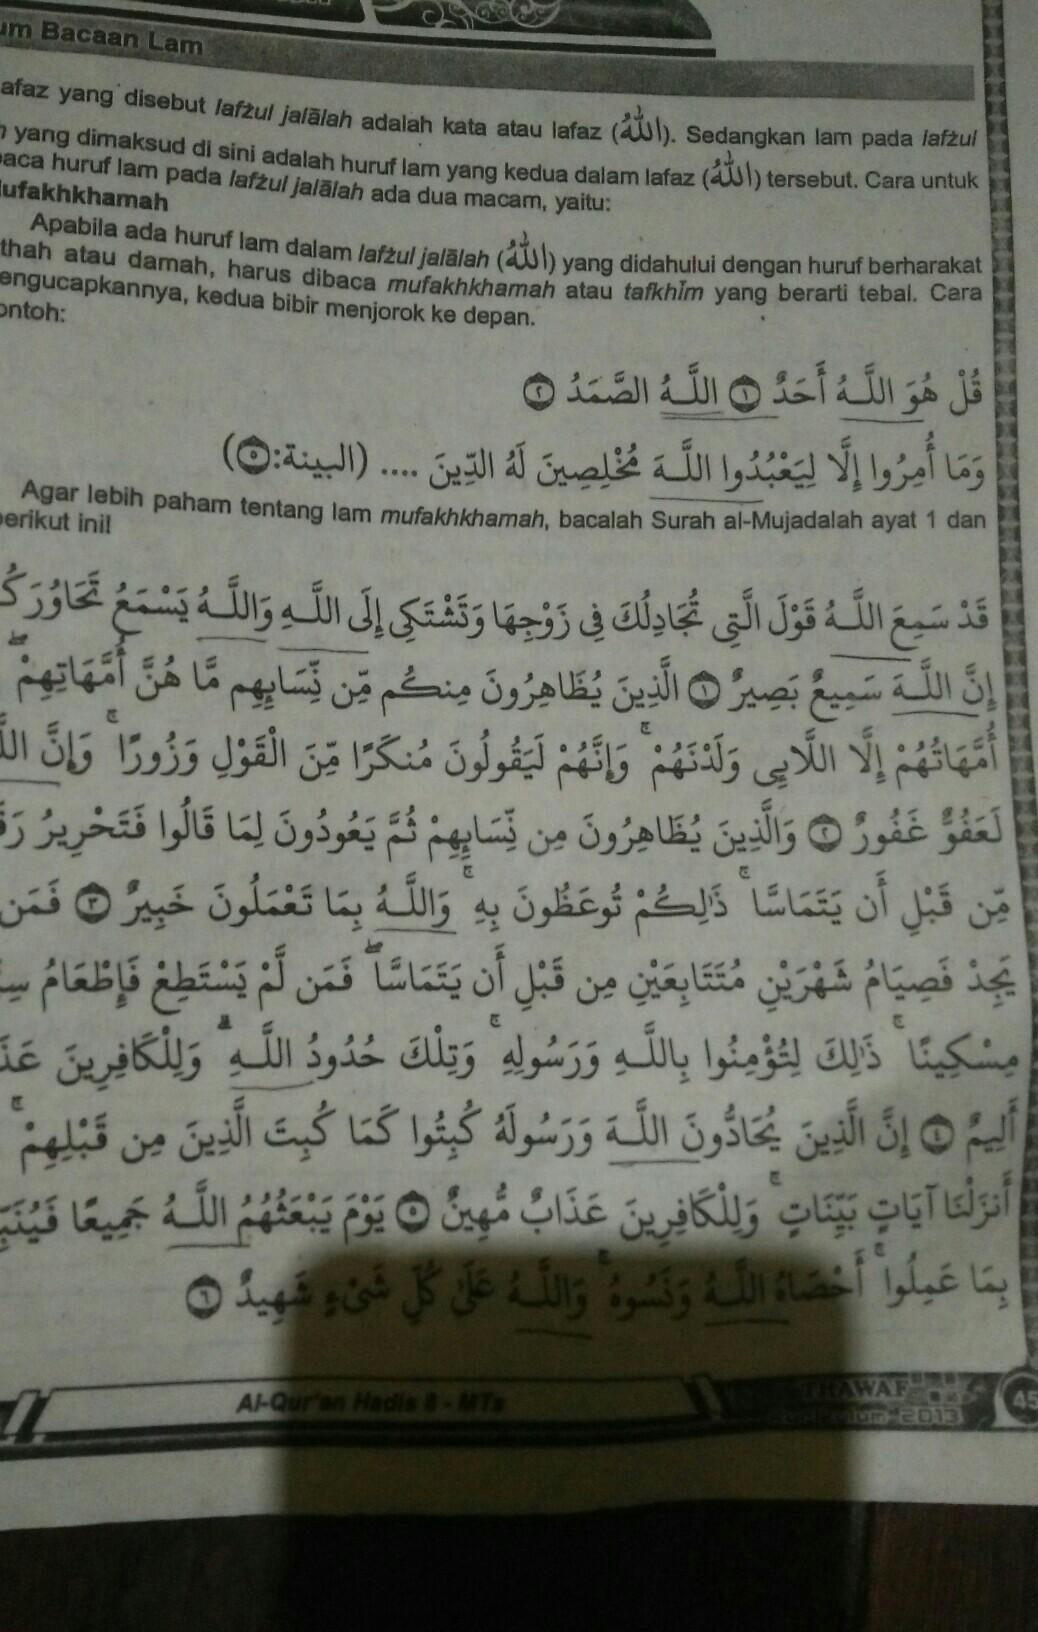 Bacaan Lam
yang disebut lafżul jalālah adalah kata atau lafaz (اللهُ). Sedangkan lam pada lafżul
yang dimaksud di sini adalah huruf lam yang kedua dalam lafaz (اللهُ) tersebut. Cara untuk
huruf lam pada lafżul jalālah ada dua macam, yaitu:
Mufakhkhamah
Apabila ada huruf lam dalam lafżul jalālah (اللهُ) yang didahului dengan huruf berharakat
atau damah, harus dibaca mufakhkhamah atau tafkhīm yang berarti tebal. Cara
mengucapkannya, kedua bibir menjorok ke depan.
ontoh:
قُلْ هُوَ اللَّـهُ أَحَدٌ ﴿١﴾ اللَّـهُ الصَّمَدُ ﴿٢﴾
وَمَا أُمِرُوا إِلَّا لِيَعْبُدُوا اللَّـهَ مُخْلِصِينَ لَهُ الدِّينَ .... (البينة:٥)
Agar lebih paham tentang lam mufakhkhamah, bacalah Surah al-Mujadalah ayat 1 dan
berikut ini!
قَدْ سَمِعَ اللَّـهُ قَوْلَ الَّتِي تُجَادِلُكَ فِي زَوْجِهَا وَتَشْتَكِي إِلَى اللَّـهِ وَاللَّـهُ يَسْمَعُ تَحَاوُرَكُ
إِنَّ اللَّـهَ سَمِيعٌ بَصِيرٌ ﴿١﴾ الَّذِينَ يُظَاهِرُونَ مِنكُم مِّن نِّسَايِهِم مَّا هُنَّ أُمَّهَاتِهِمْ ۖ
أُمَّهَاتُهُمْ إِلَّا اللَّايِي وَلَدْنَهُمْ ۚ وَإِنَّهُمْ لَيَقُولُونَ مُنكَرًا مِّنَ الْقَوْلِ وَزُورًا ۚ وَإِنَّ
لَعَفُوٌّ غَفُورٌ ﴿٢﴾ وَالَّذِينَ يُظَاهِرُونَ مِن نِّسَايِهِمْ ثُمَّ يَعُودُونَ لِمَا قَالُوا فَتَحْرِيرُ
مِّن قَبْلِ أَن يَتَمَاسَّا ۚ ذَٰلِكُمْ تُوعَظُونَ بِهِ ۚ وَاللَّـهُ بِمَا تَعْمَلُونَ خَبِيرٌ ﴿٣﴾ فَمَن
يَجِدْ فَصِيَامُ شَهْرَيْنِ مُتَتَابِعَيْنِ مِن قَبْلِ أَن يَتَمَاسَّا ۖ فَمَن لَّمْ يَسْتَطِعْ فَإِطْعَامُ
مِسْكِينًا ۚ ذَٰلِكَ لِتُؤْمِنُوا بِاللَّـهِ وَرَسُولِهِ ۚ وَتِلْكَ حُدُودُ اللَّـهِ ۗ وَلِلْكَافِرِينَ
أَلِيمٌ ﴿٤﴾ إِنَّ الَّذِينَ يُحَادُّونَ اللَّـهَ وَرَسُولَهُ كُبِتُوا كَمَا كُبِتَ الَّذِينَ مِن قَبْلِهِمْ ۚ
أَنزَلْنَا آيَاتٍ بَيِّنَاتٍ ۚ وَلِلْكَافِرِينَ عَذَابٌ مُّهِينٌ ﴿٥﴾ يَوْمَ يَبْعَثُهُمُ اللَّـهُ جَمِيعًا
بِمَا عَمِلُوا ۚ أَحْصَاهُ اللَّـهُ وَنَسُوهُ ۚ وَاللَّـهُ عَلَىٰ كُلِّ شَىْءٍ شَهِيدٌ ﴿٦﴾
Al-Qur'an Hadis 8 - MTs
THAWAF
Kurikulum 2013
45